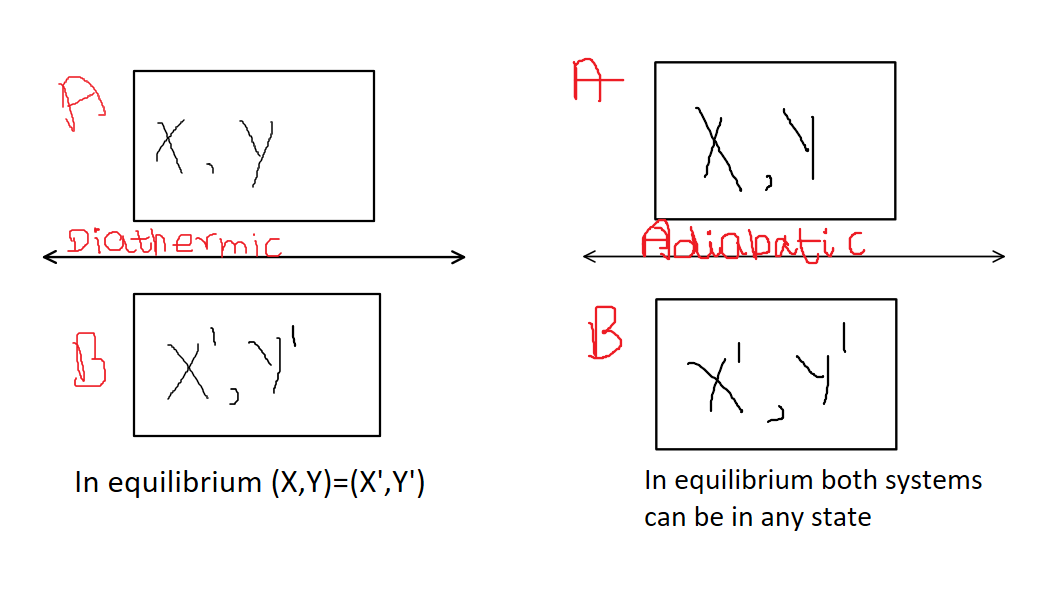 A
X, Y
Diathermic
B
X', Y'
In equilibrium (X,Y)=(X',Y')
A
X, Y
Adiabatic
B
X', Y'
In equilibrium both systems
can be in any state